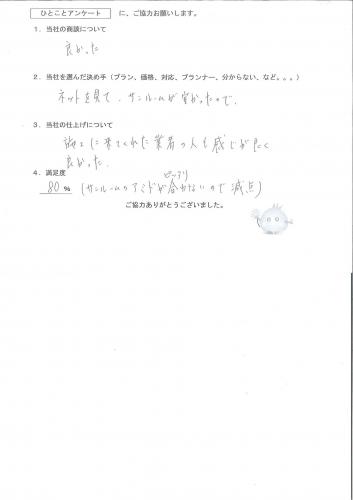 ひとことアンケート に、ご協力お願いします。
1．当社の商談について
良かった
2．当社を選んだ決め手（プラン、価格、対応、プランナー、分からない、など。。。）
ネットを見て、サンルームが安かったので、
3．当社の仕上げについて
施工に来てくれた業者の人も感じが良く
良かった.
4．満足度
ピッタリ
80 % (サンルームのアミドが合わないので減点)
ご協力ありがとうございました。